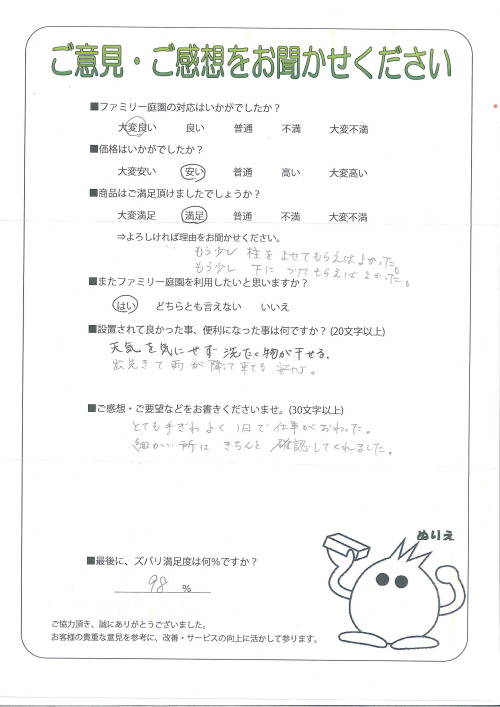 ご意見・ご感想をお聞かせください
■ファミリー庭園の対応はいかがでしたか?
大変良い 良い 普通 不満 大変不満
■価格はいかがでしたか?
大変安い 安い 普通 高い 大変高い
■商品はご満足頂けましたでしょうか?
大変満足 満足 普通 不満 大変不満
⇒よろしければ理由をお聞かせください。
もう少し 柱をよせてもらえばよかった。
もう少し 下につけてもらえばよかった。
■またファミリー庭園を利用したいと思いますか?
はい どちらとも言えない いいえ
■設置されて良かった事、便利になった事は何ですか?(20文字以上)
天気を気にせず洗たく物が干せる。
出先きで雨が降って来ても安心。
■ご感想・ご要望などをお書きくださいませ。(30文字以上)
とても手ぎわよく1日で仕事がおわった。
細かい所はきちんと確認してくれました。
ぬりえ
■最後に、ズバリ満足度は何%ですか?
98 %
ご協力頂き、誠にありがとうございました。
お客様の貴重な意見を参考に、改善・サービスの向上に活かして参ります。